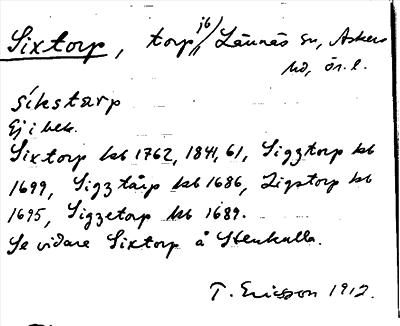 Sixtorp, torp jb / Lännäs sn, Askers
hd, ör. l.
síkstarp
Ej i bek.
Sixtorp kb 1762, 1841, 61, Siggtorp kb
1699, Siggtårp kb 1686, Zigstorp kb
1695, Siggetorp kb 1689.
Se vidare Sixtorp å Stenkulla.
T. Ericsson 1912.